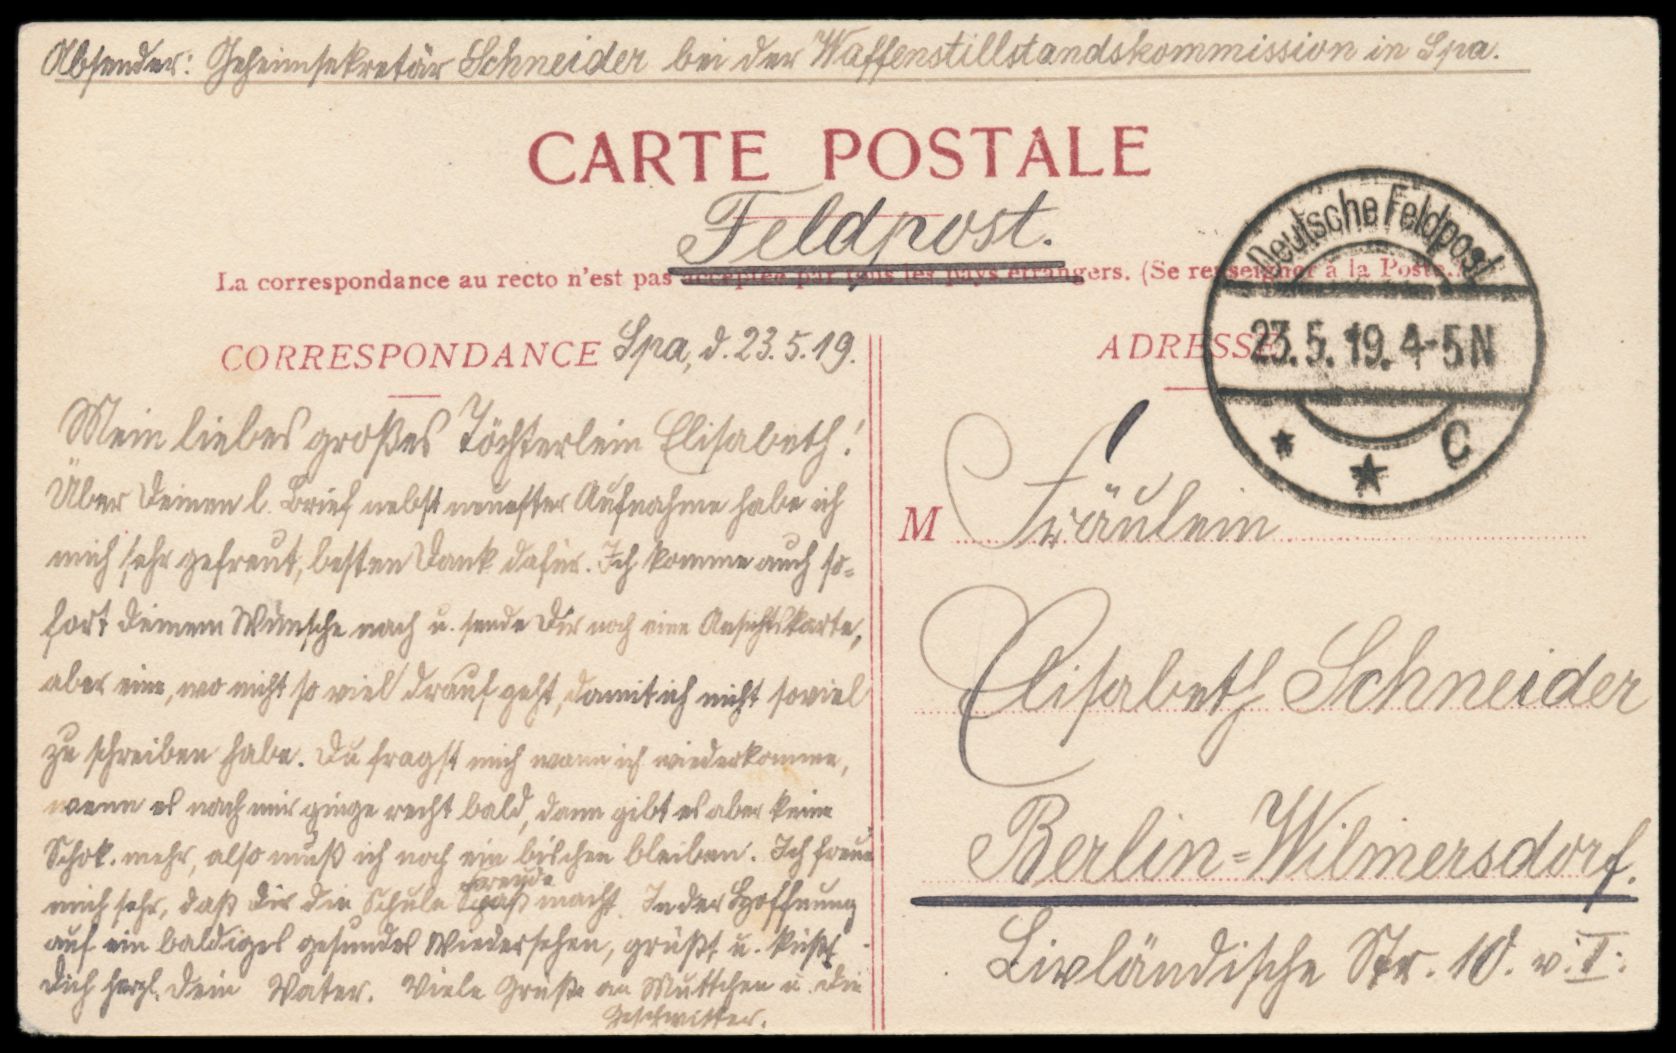 Absender: Geheimsekretär Schneider bei der Waffenstillstandskommission in Spa.
CARTE POSTALE
Feldpost.
La correspondance au recto n'est pas acceptée par tous les pays étrangers. (Se renseigner à la Poste.)
Deutsche Feldpost
23.5.19. 4-5N
C
CORRESPONDANCE
Spa, d. 23.5.19.
Mein liebes großes Töchterlein Elisabeth!
Über Deinen l. Brief nebst neuester Aufnahme habe ich
mich sehr gefreut, besten Dank dafür. Ich komme auch so-
fort Deinem Wunsche nach u. sende Dir noch eine Ansichtskarte,
aber eine, wo nicht so viel drauf geht, damit ich nicht soviel
zu schreiben habe. Du fragst mich wann ich wiederkomme,
wenn es nach mir ginge recht bald, dann gibt es aber keine
Schok. mehr, also muß ich noch ein bischen bleiben. Ich freue
mich sehr, daß Dir die Schule Spaß Freude macht. In der Hoffnung
auf ein baldiges gesundes Wiedersehen, grüßt u. küßt
Dich herzl. Dein Vater. Viele Grüße an Muttchen u. die
Geschwister.
ADRESSE
M Fräulein
Elisabeth Schneider
Berlin-Wilmersdorf.
Livländische Str. 10. v. I.